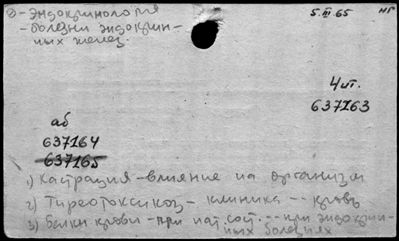 ② - Эндокринология 5.III.65 нг
- болезни эндокрин-
ных желез
4 шт.
637163
аб
637164
637165
1) Кастрация - влияние на организм
2) Тиреотоксикоз - клиника -·- кровь
3) Белки крови - при пат. сост. -·- при эндокрин-
ных болезнях